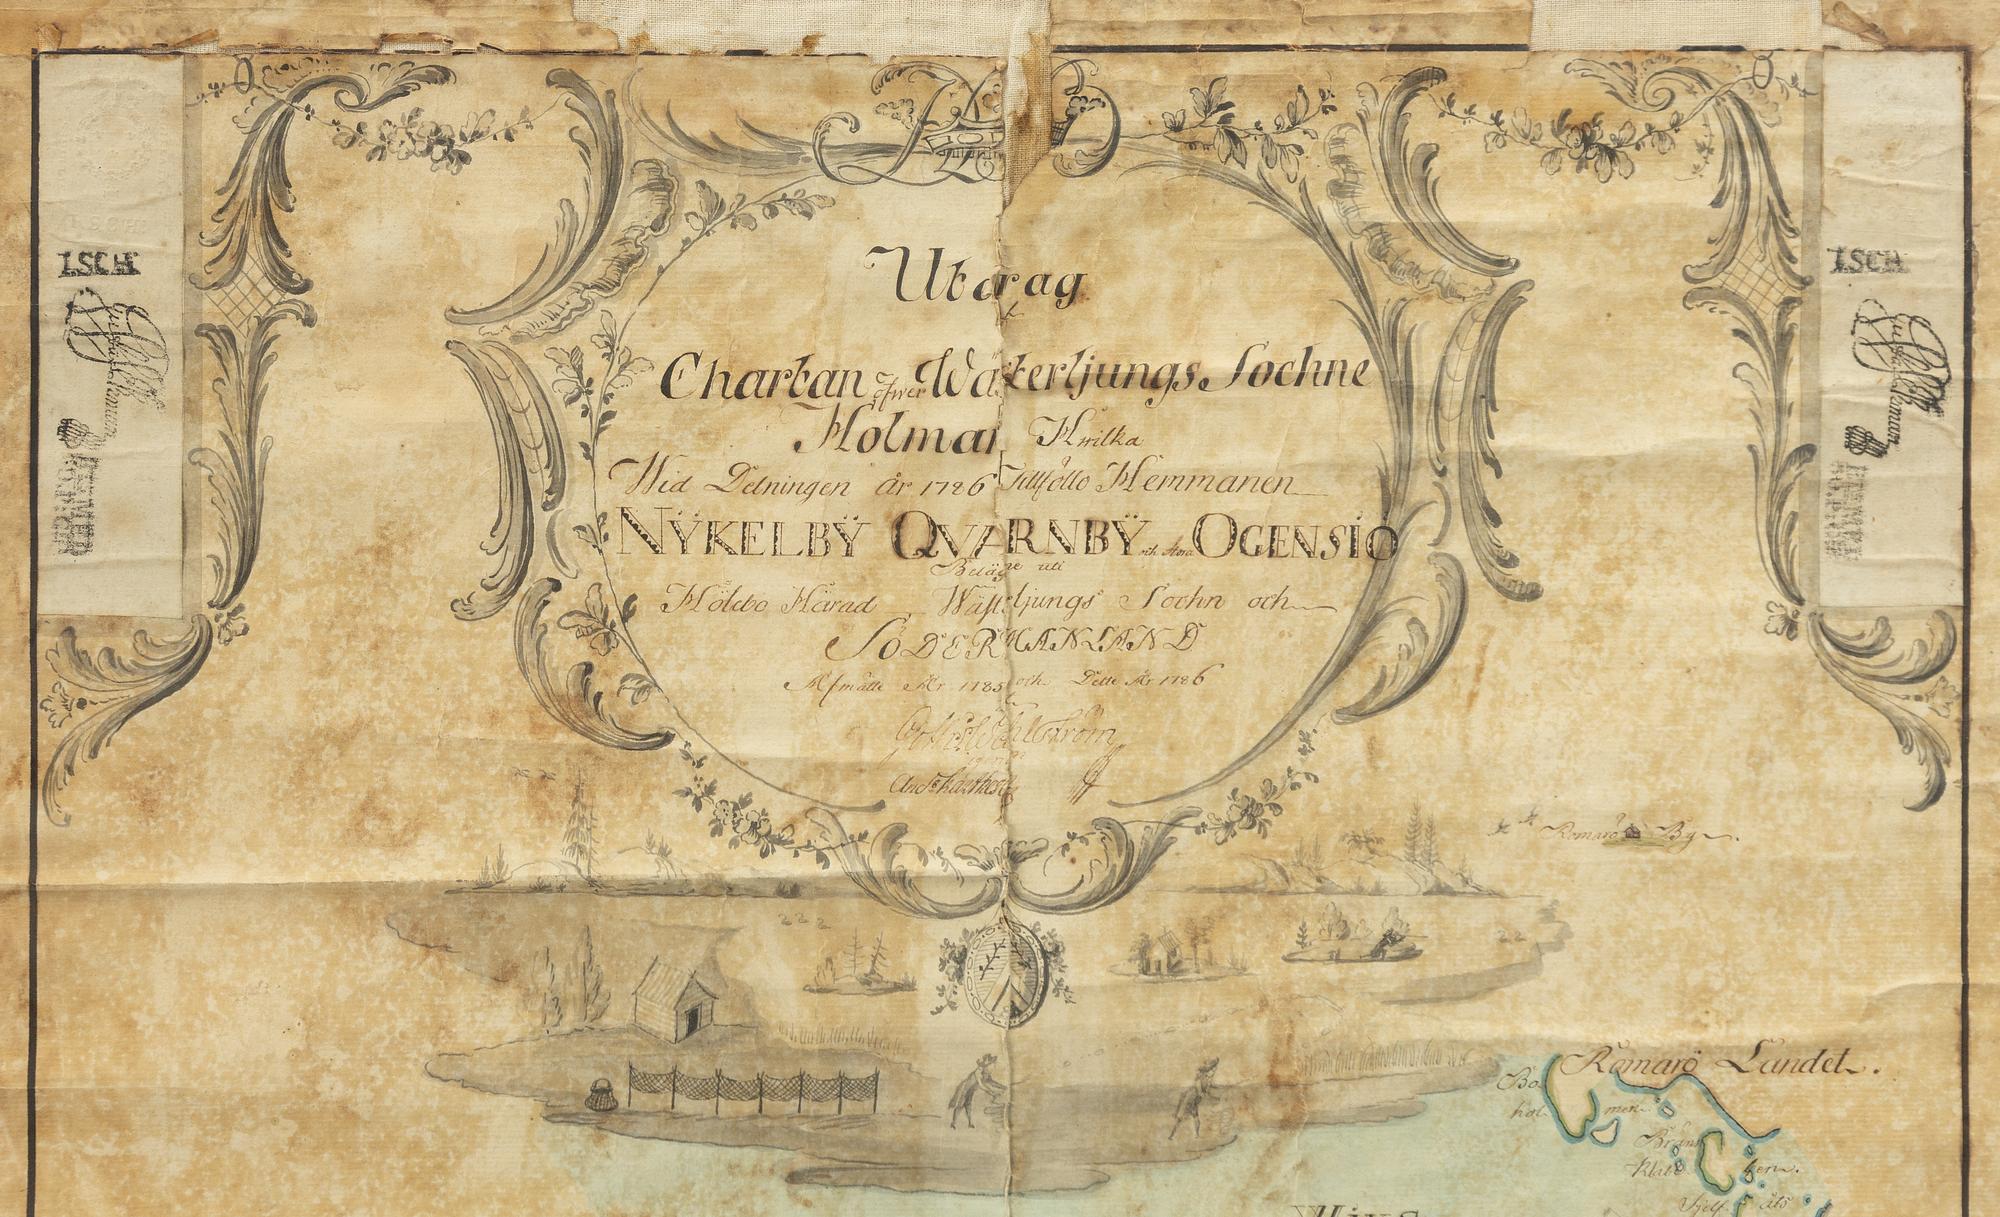 Utdrag
af
Chartan öfwer Wästerljungs Sochne
Holmar Hwilka
Wid Delningen år 1786 Tillföllo Hemmanen
NŸKELBŸ QVARNBŸ och stora OGENSIÖ
Belägne uti
Hölebo Härad Wästerljungs Sochn och
SÖDERMANLAND
Afmätte År 1785 och Dette År 1786
Romarö By
Romarö Lundet.
Bo
hol men
Bränn
Klabb
ISCH
ISCH